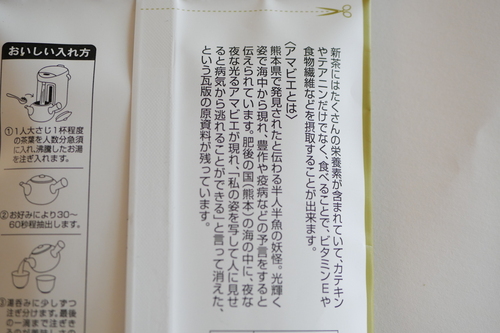 おいしい入れ方
①1人大さじ1杯程度
の茶葉を人数分急須
に入れ、沸騰したお湯
を注ぎ入れます。
②お好みにより30～
60秒程抽出します。
③湯呑みに少しずつ
注ぎ分けます。最後
の一滴まで注ぎき
新茶にはたくさんの栄養素が含まれていて、カテキン
やテアニンだけでなく、食べることで、ビタミンEや
食物繊維などを摂取することが出来ます。
〈アマビエとは〉
熊本県で発見されたと伝わる半人半魚の妖怪。光輝く
姿で海中から現れ、豊作や疫病などの予言をすると
伝えられています。肥後の国（熊本）の海の中に、夜な
夜な光るアマビエが現れ、「私の姿を写して人に見せ
ると病気から逃れることができる」と言って消えた、
という瓦版の原資料が残っています。